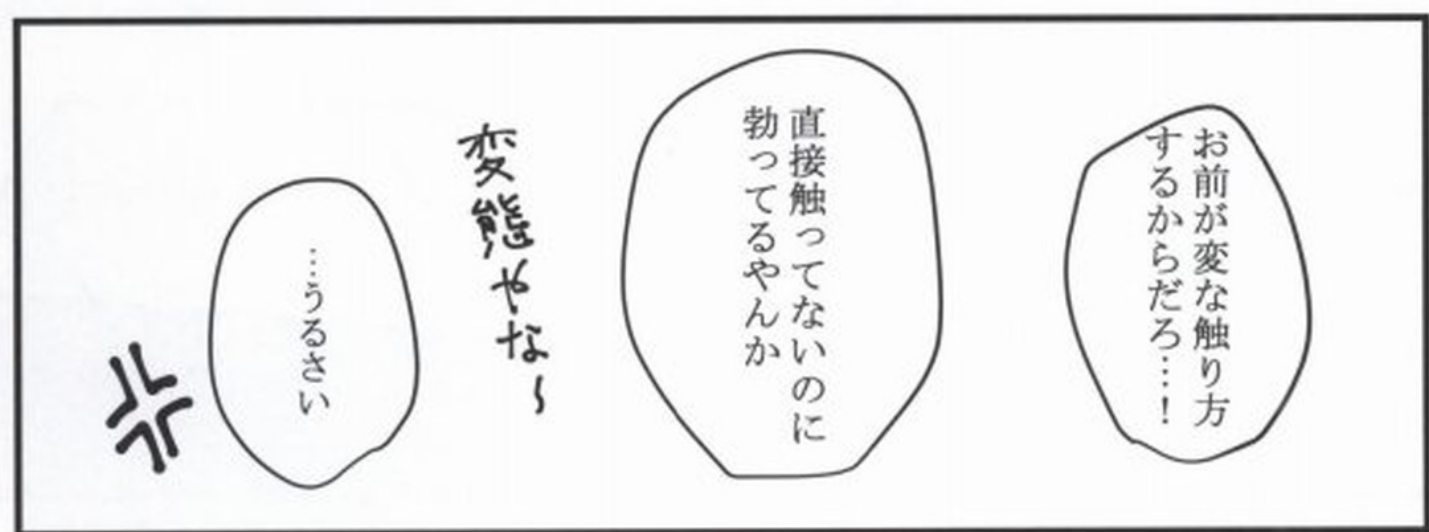 お前が変な触り方
するからだろ…！
直接触ってないのに
勃ってるやんか
変態やな～
…うるさい